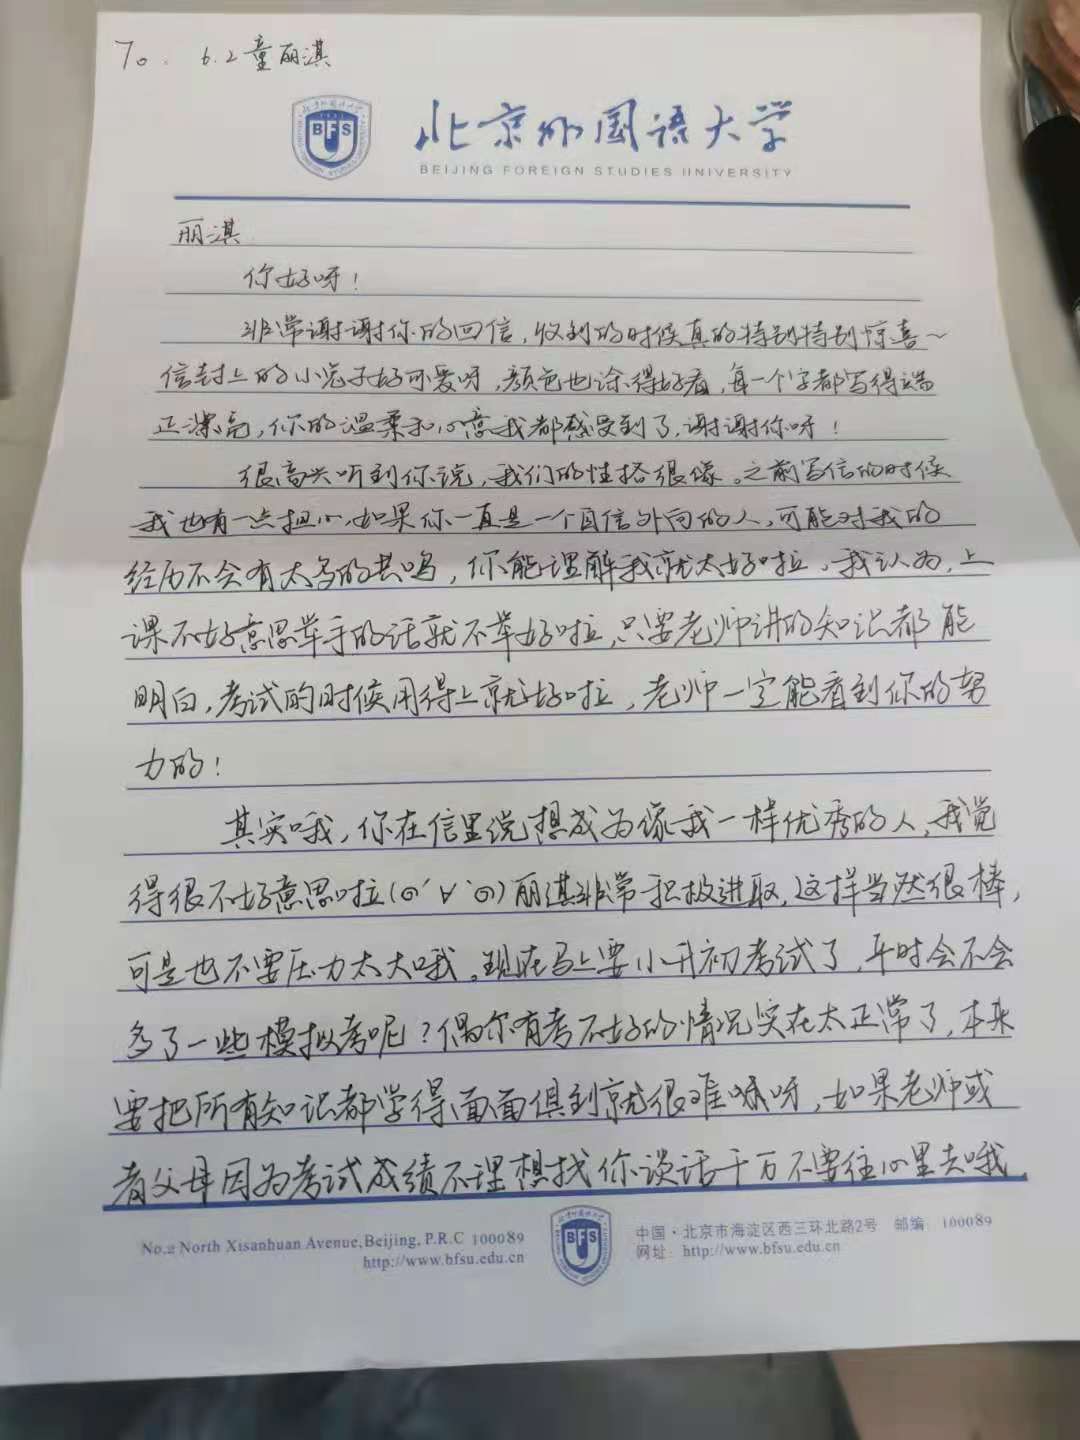 70. 6.2童丽淇
BFS
北京外国语大学
BEIJING FOREIGN STUDIES UNIVERSITY
丽淇
你好呀！
非常谢谢你的回信，收到的时候真的特别特别惊喜～
信封上的小兔子好可爱呀，颜色也涂得好看，每一个字都写得端
正漂亮，你的温柔和心意我都感受到了，谢谢你呀！
很高兴听到你说，我们的性格很像。之前写信的时候
我也有一点担心，如果你一直是一个自信外向的人，可能对我的
经历不会有太多的共鸣，你能理解我就太好啦。我认为，上
课不好意思举手的话就不举好啦，只要老师讲的知识都能
明白，考试的时候用得上就好啦，老师一定能看到你的努
力的！
其实哦，你在信里说想成为像我一样优秀的人，我觉
得很不好意思啦(๑´∀`๑)丽淇非常积极进取，这样当然很棒，
可是也不要压力太大哦。现在马上要小升初考试了，平时会不会
多了一些模拟考呢？偶尔有考不好的情况实在太正常了，本来
要把所有知识都学得面面俱到就很难嘛呀，如果老师或
者父母因为考试成绩不理想找你谈话千万不要往心里去哦
No.2 North Xisanhuan Avenue,Beijing, P.R.C 100089
http://www.bfsu.edu.cn
BFS
中国·北京市海淀区西三环北路2号 邮编 100089
网址：http://www.bfsu.edu.cn